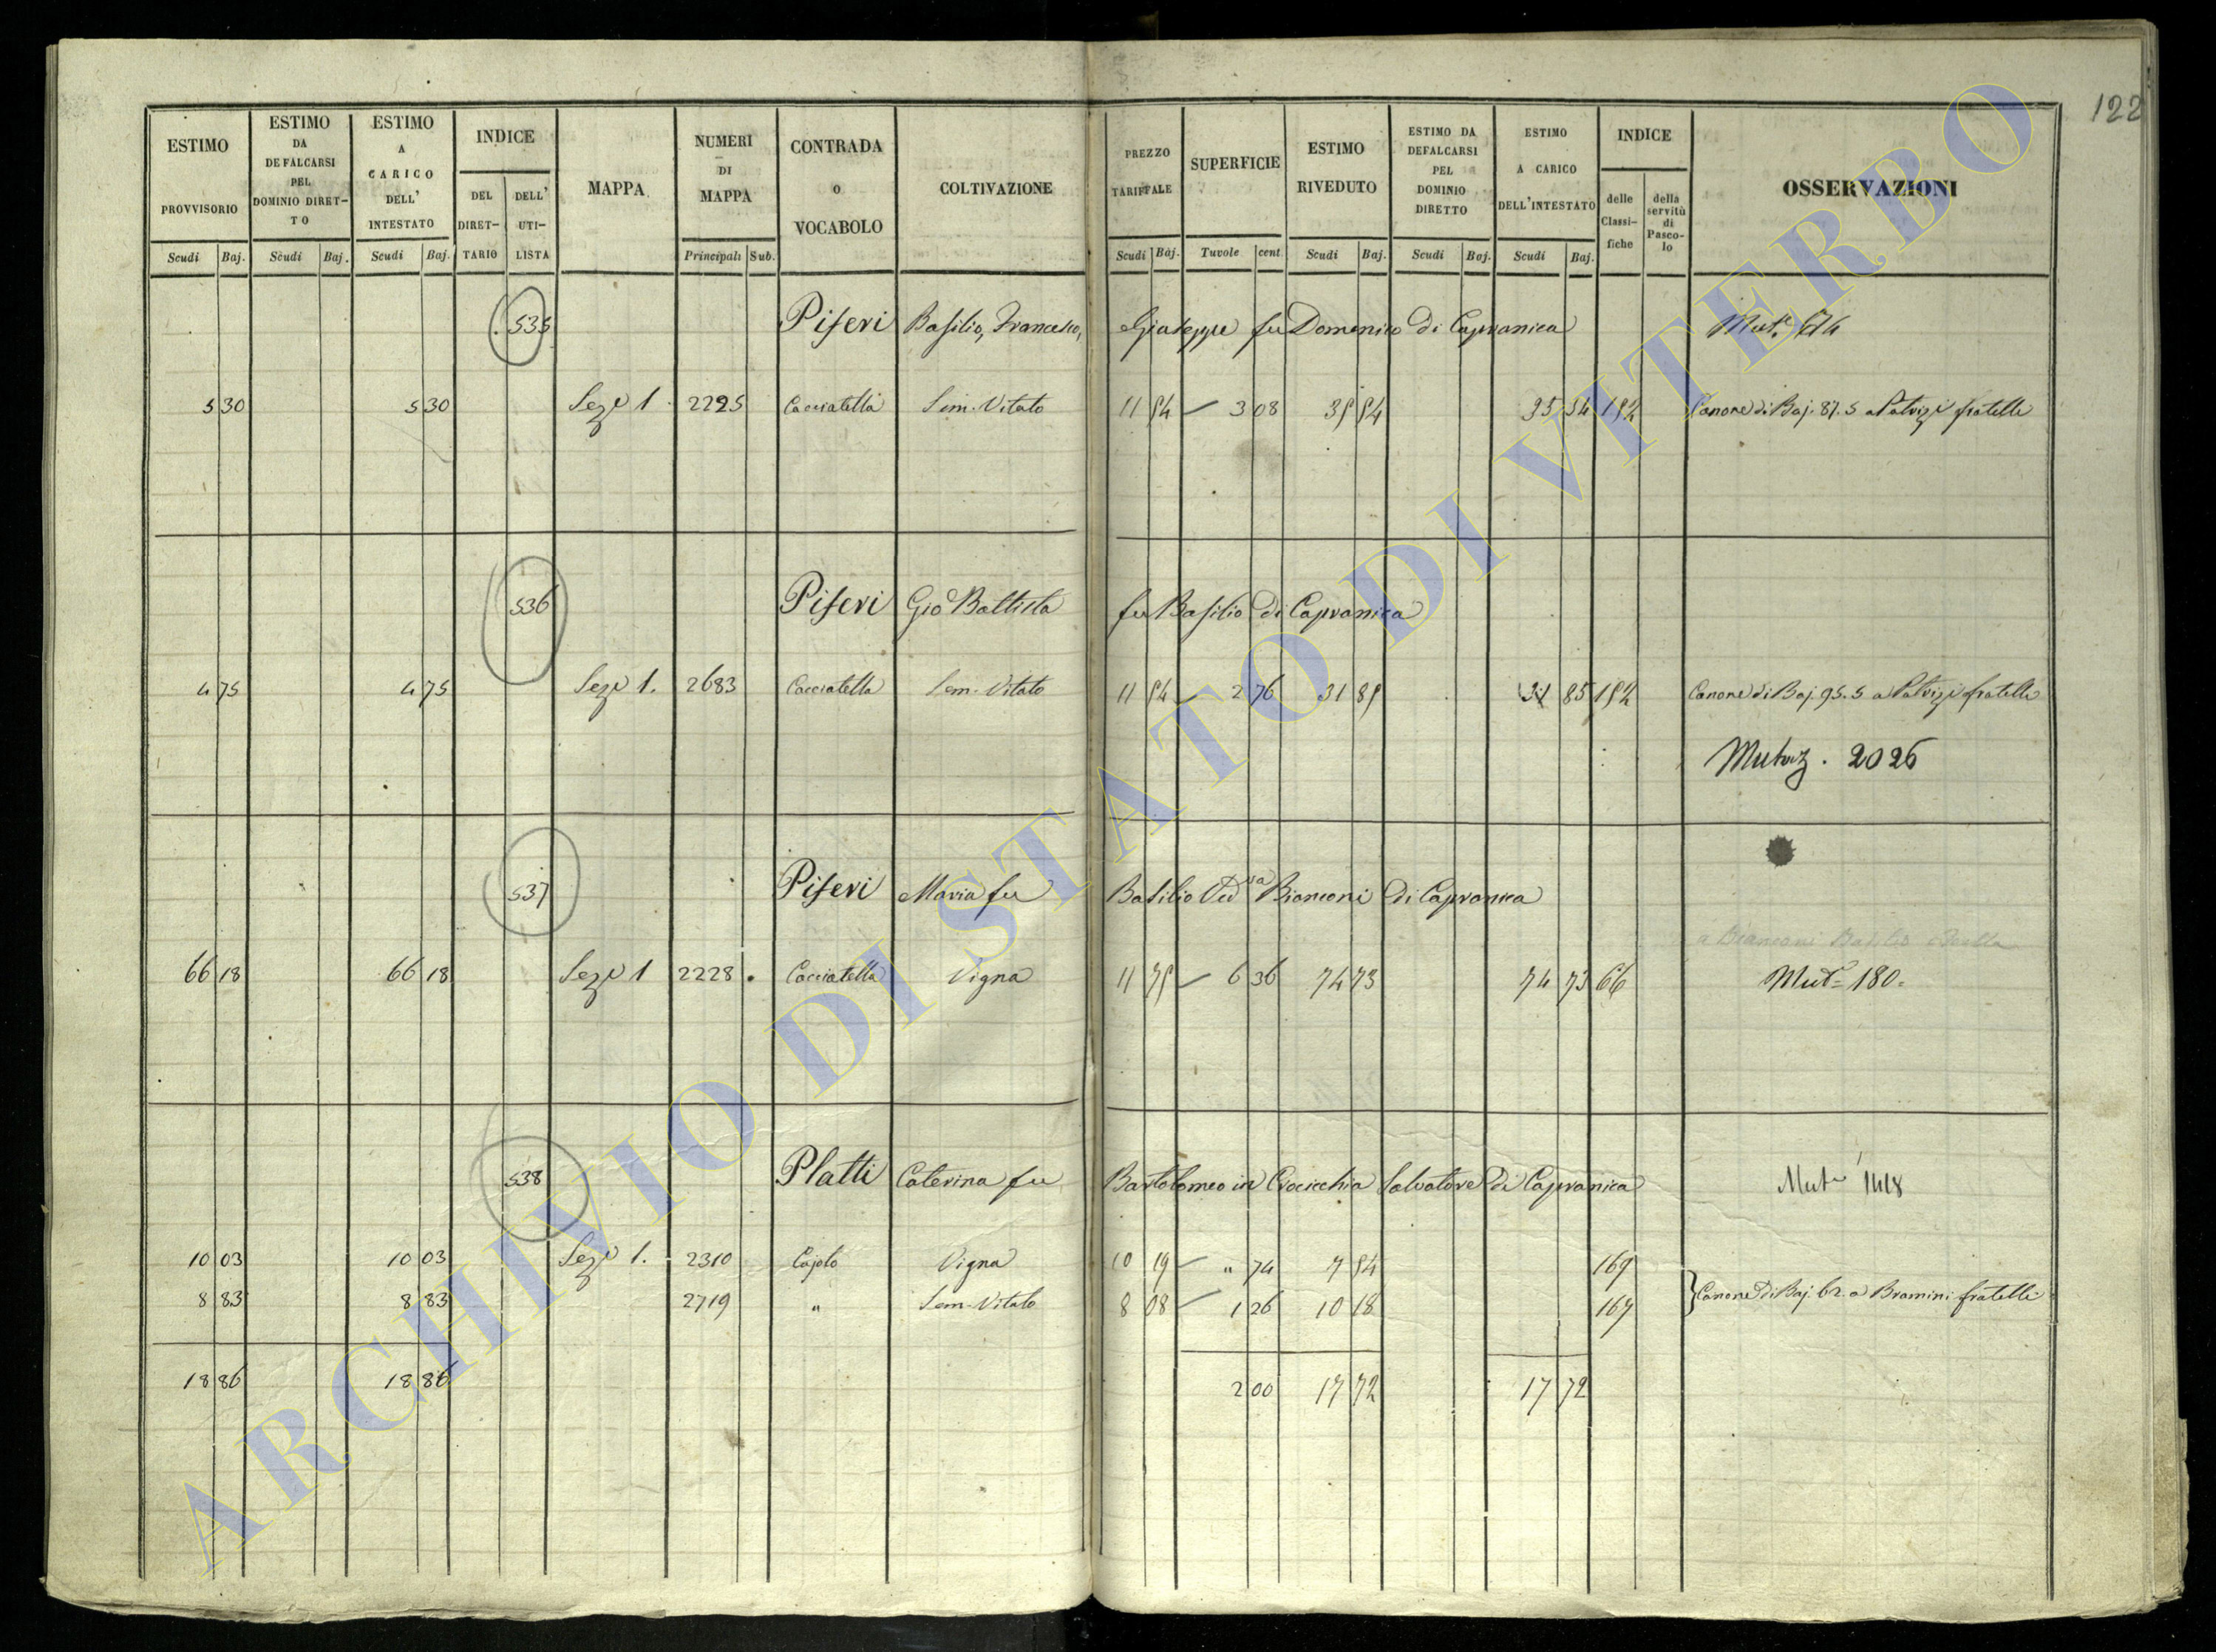 122
ESTIMO PROVVISORIO
ESTIMO DA DEFALCARSI PEL DOMINIO DIRET-TO
ESTIMO A CARICO DELL' INTESTATO
INDICE
DEL DIRET-TARIO
DELL' UTI-LISTA
MAPPA
NUMERI DI MAPPA
CONTRADA O VOCABOLO
COLTIVAZIONE
PREZZO TARIFFALE
SUPERFICIE
ESTIMO RIVEDUTO
ESTIMO DA DEFALCARSI PEL DOMINIO DIRETTO
ESTIMO A CARICO DELL'INTESTATO
INDICE
delle Classi-fiche
della servitù di Pasco-lo
OSSERVAZIONI
Scudi Baj. Scudi Baj. Scudi Baj. Principali Sub. Scudi Baj. Tavole cent Scudi Baj. Scudi Baj. Scudi Baj.
535 Piferi Basilio, Francesco, Giuseppe fu Domenico di Capranica
5 30 5 30 Seze 1 2225 Cacciatella Sem. Vitato 11 54 3 08 35 54 35 54 Canone di Baj. 87.5 a Patrizi fratelli
536 Piferi Gio Battista fu Basilio di Capranica
4 75 4 75 Seze 1. 2683 Cacciatella Sem. Vitato 11 54 2 76 31 85 31 85 Canone di Baj. 95.5 a Patrizi fratelli
Mutaz. 2026
537 Piferi Maria fu Basilio Ved va Bianconi di Capranica
a Bianconi Basilio
66 18 66 18 Seze 1 2228 Cacciatella Vigna 11 75 6 36 74 73 74 73 66 Mut= 180=
538 Platti Caterina fu Bartolomeo in Crocicchia Salvatore di Capranica Mut 1418
10 03 10 03 Seze 1. 2310 Cajolo Vigna 10 19 " 74 7 54 169
8 83 8 83 2719 " Sem. Vitato 8 08 1 26 10 18 167 Canone di Baj. 62. a Bramini fratelli
18 86 18 86 2 00 17 72 17 72
ARCHIVIO DI STATO DI VITERBO